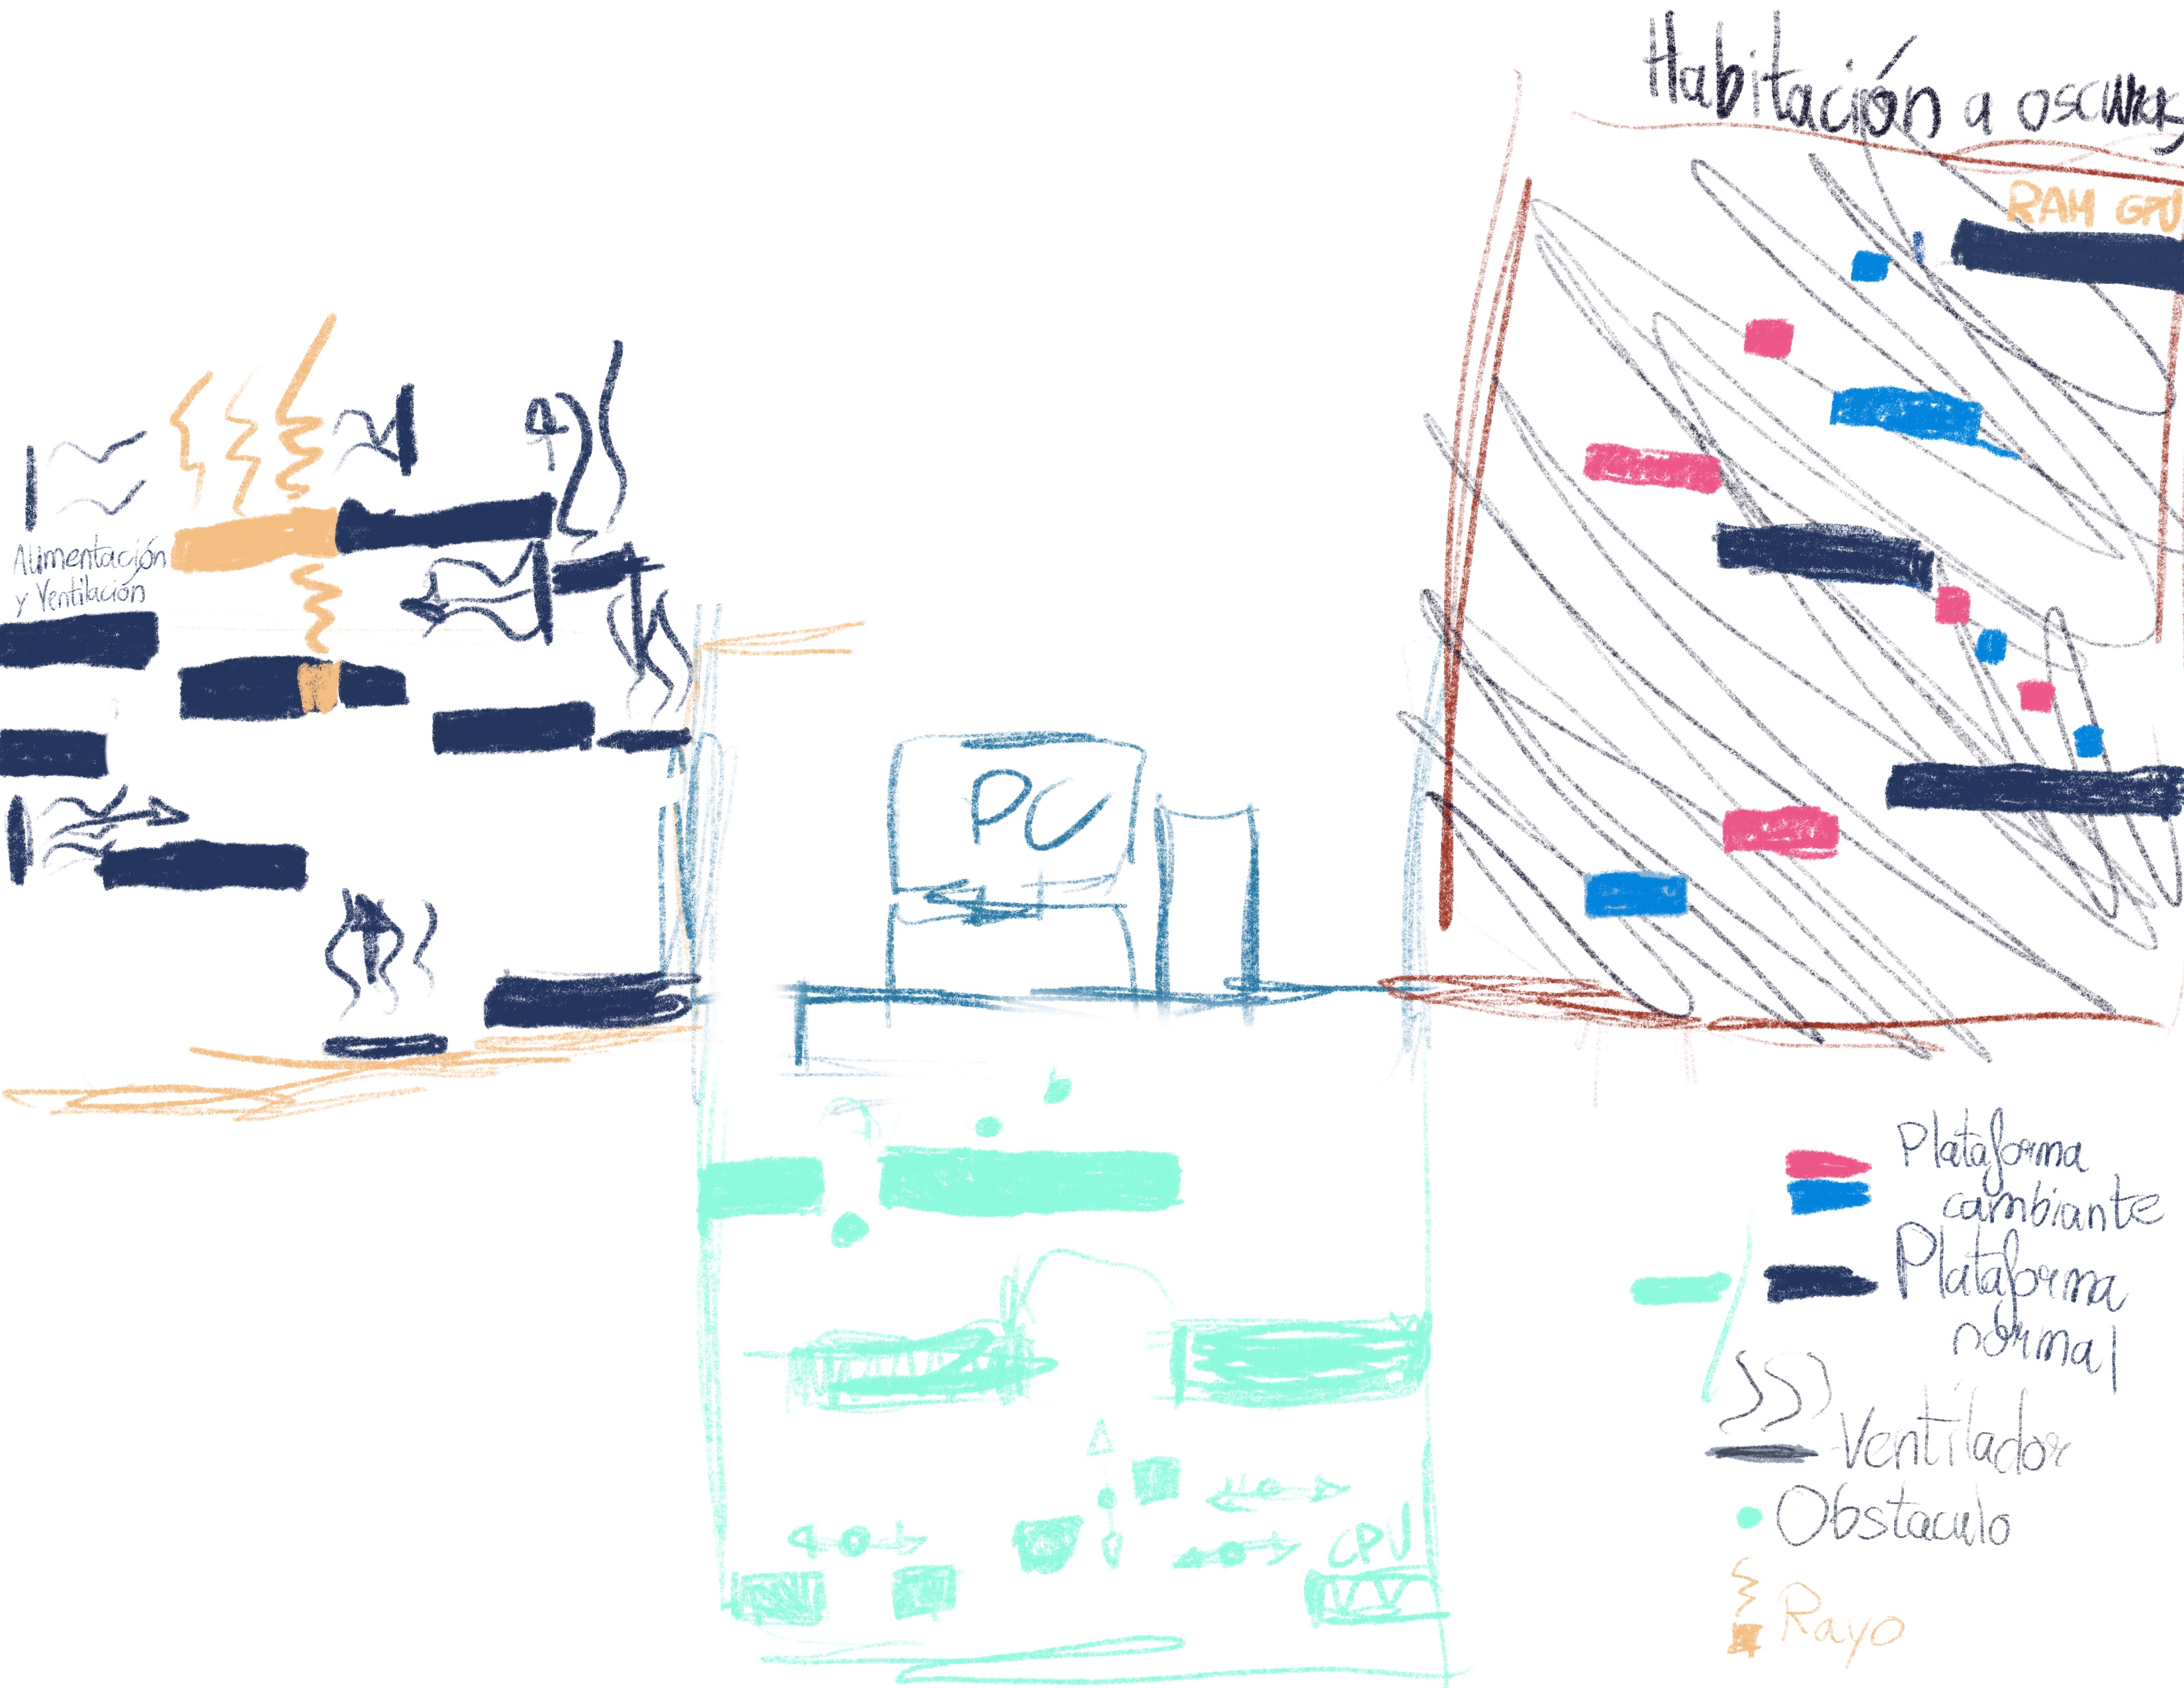 Habitación a oscuras
RAM GPU
Alimentación
y Ventilación
PC
CPU
Plataforma
cambiante
Plataforma
normal
Ventilador
Obstaculo
Rayo